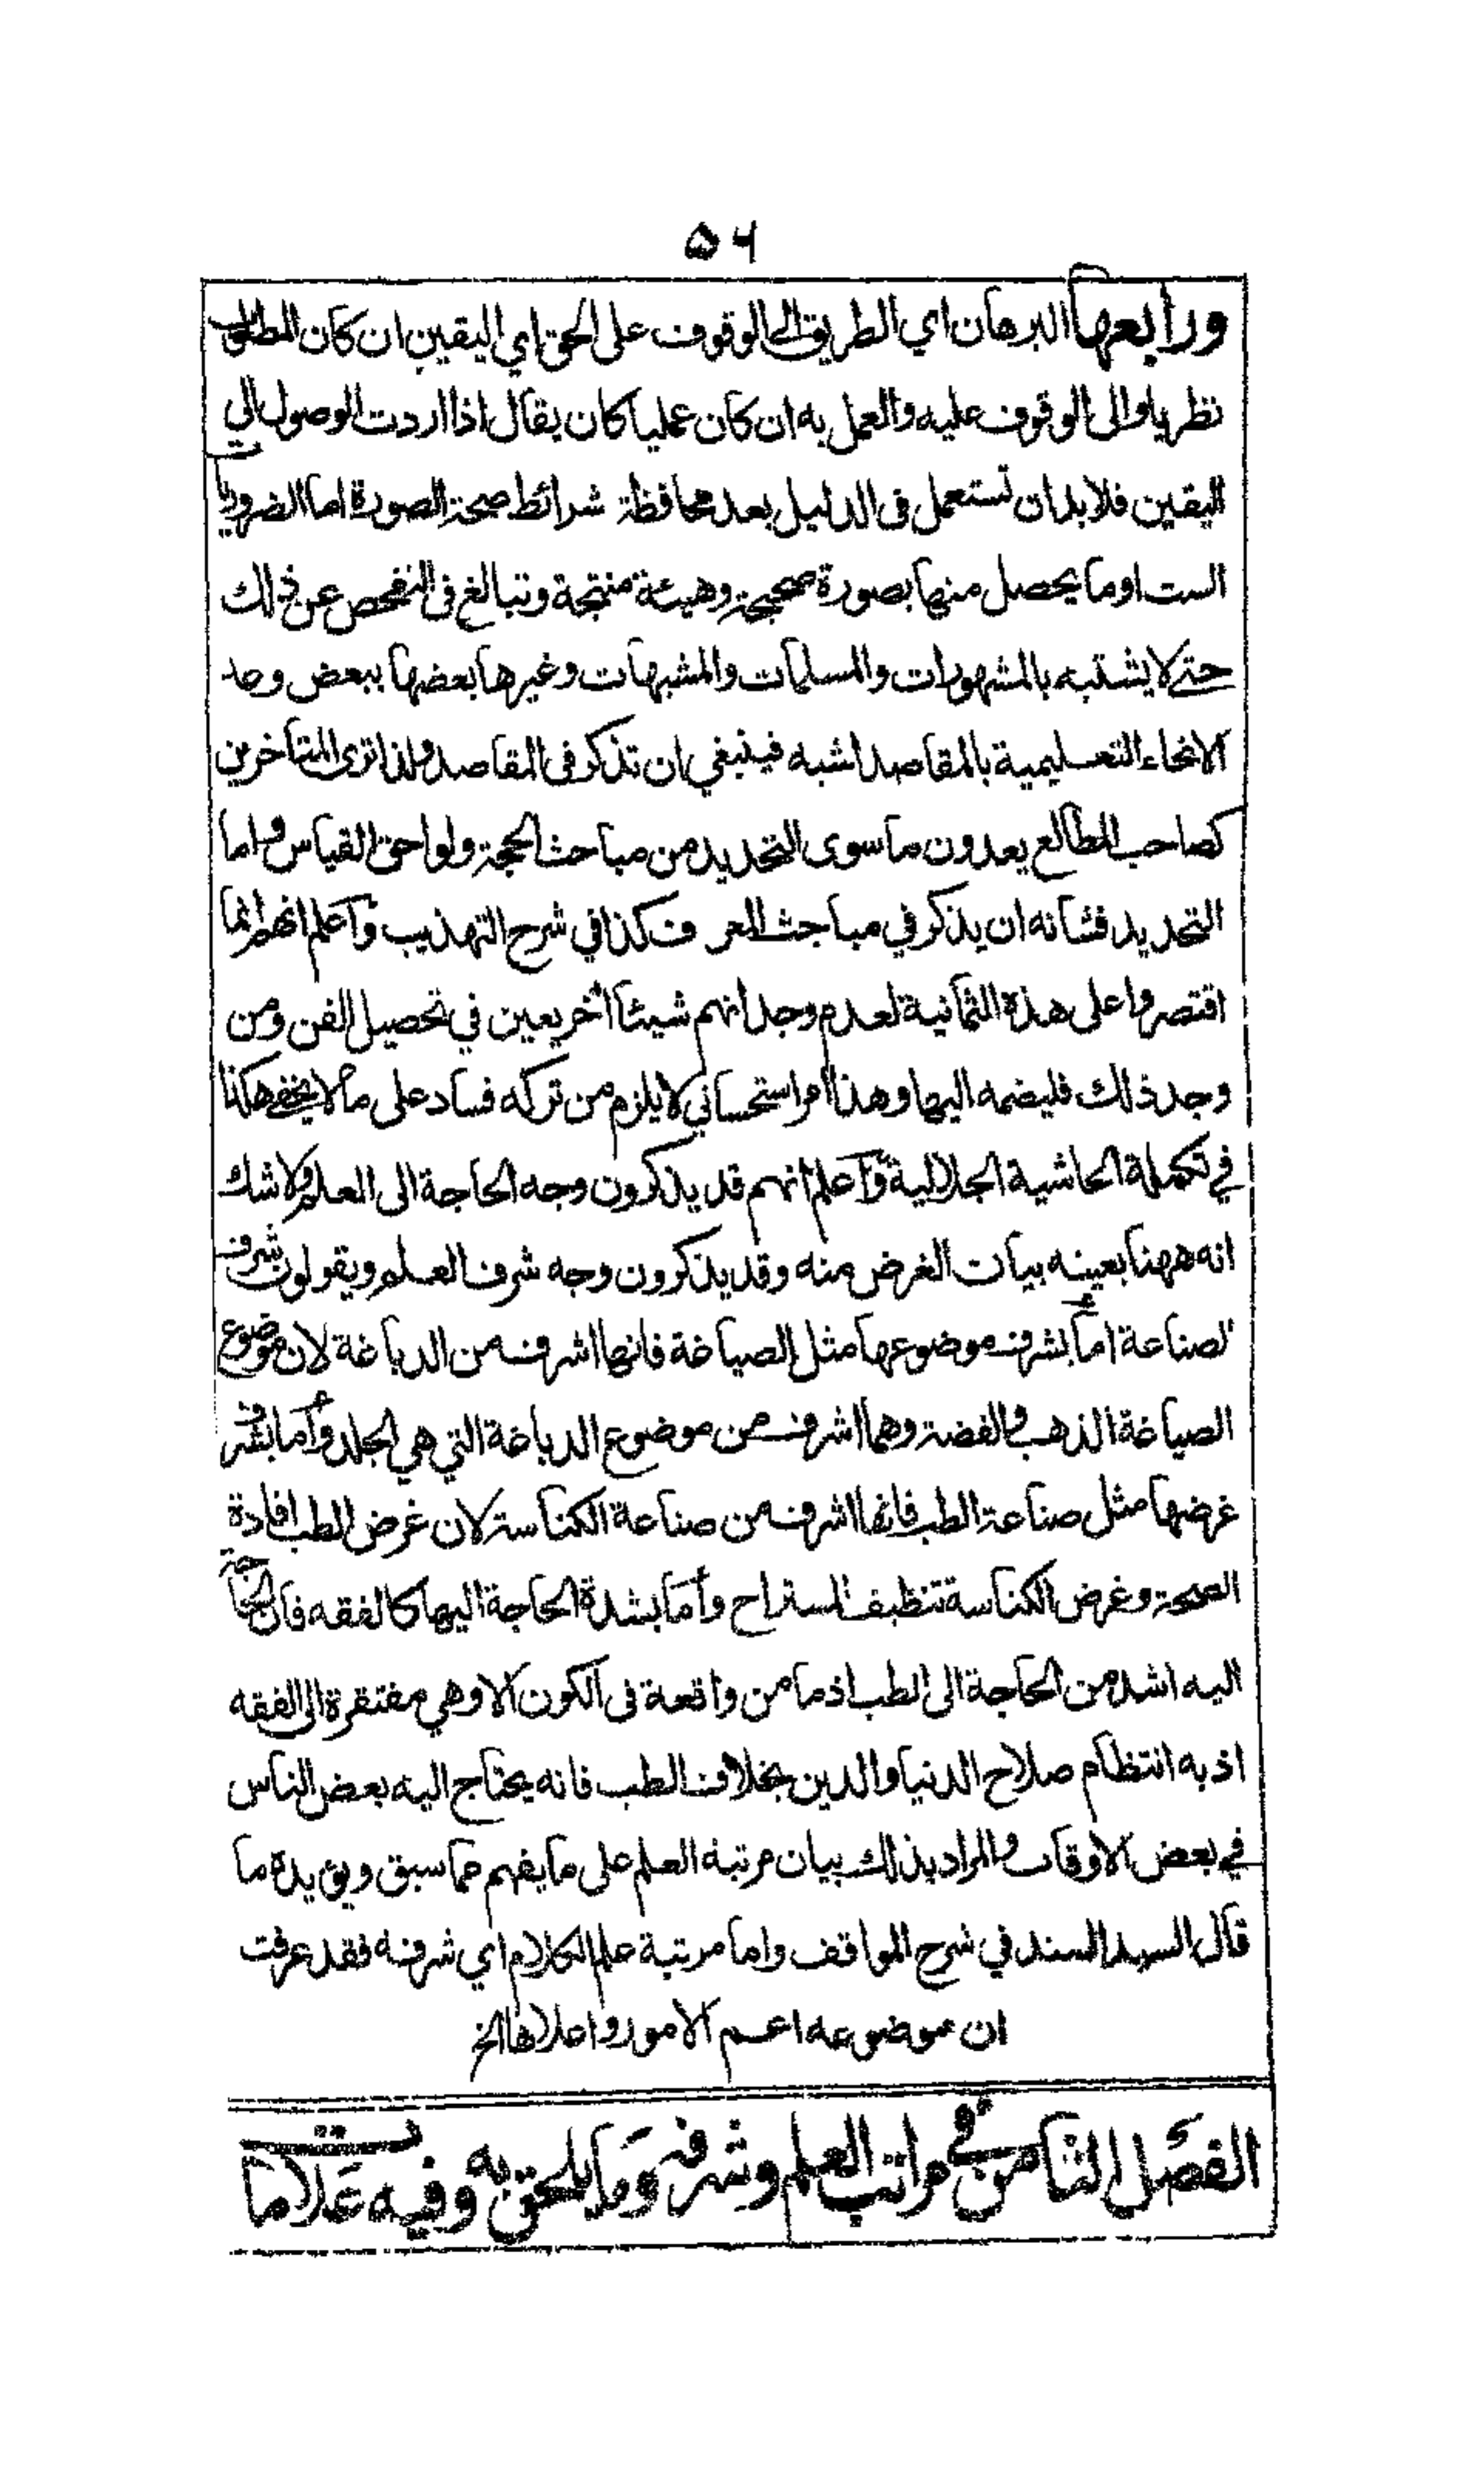 ۵۶
ورابعها البرهان اي الطريق الى الوقوف على الحق اي اليقين ان كان المطلب
نظريا والى الوقوف عليه والعمل به ان كان عمليا كان يقال اذا اردت الوصول الى
اليقين فلا بد ان تستعمل فى الدليل بعد محافظة شرائط صحة الصورة اما الضروريات
الست او ما يحصل منها بصورة صحيحة وهيئة منتجة وتبالغ فى التفحص عن ذلك
حتى لا يشتبه بالمشهورات والمسلمات والمشبهات وغيرها بعضها ببعض وعد
الانحاء التعليمية بالمقاصد اشبه فينبغي ان تذكر فى المقاصد ولذا ترى المتاخرين
كصاحب المطالع يعدون ما سوى التحديد من مباحث الحجة ولواحق القياس واما
التحديد فشانه ان يذكر في مباحث المعرف كذا في شرح التهذيب واعلم انهم انما
اقتصروا على هذه الثمانية لعدم وجدانهم شيئا آخر يعين في تحصيل الفن ومن
وجد ذلك فليضمه اليها وهذا امر استحساني لا يلزم من تركه فساد على ما لا يخفى هكذا
في تكملة الحاشية الجلالية واعلم انهم قد يذكرون وجه الحاجة الى العلم ولا شك
انه ههنا بعينه بيان الغرض منه وقد يذكرون وجه شرف العلم ويقولون شرف
لصناعة اما بشرف موضوعها مثل الصياغة فانها اشرف من الدباغة لان موضوع
الصياغة الذهب والفضة وهما اشرف من موضوع الدباغة التي هي الجلد واما بشرف
غرضها مثل صناعة الطب فانها اشرف من صناعة الكناسة لان غرض الطب افادة
الصحة وغرض الكناسة تنظيف المستراح واما بشدة الحاجة اليها كالفقه فان الحاجة
اليه اشد من الحاجة الى الطب اذ ما من واقعة فى الكون الا وهي مفتقرة الى الفقه
اذ به انتظام صلاح الدنيا والدين بخلاف الطب فانه يحتاج اليه بعض الناس
في بعض الاوقات والمراد بذلك بيان مرتبة العلم على ما يفهم مما سبق ويؤيده ما
قال السيد السند في شرح المواقف واما مرتبة علم الكلام اي شرفه فقد عرفت
ان موضوعه اعم الامور واعلاها الخ
الفصل الثامن في مراتب العلم وشرفه وما يلحق به وفيه علامات